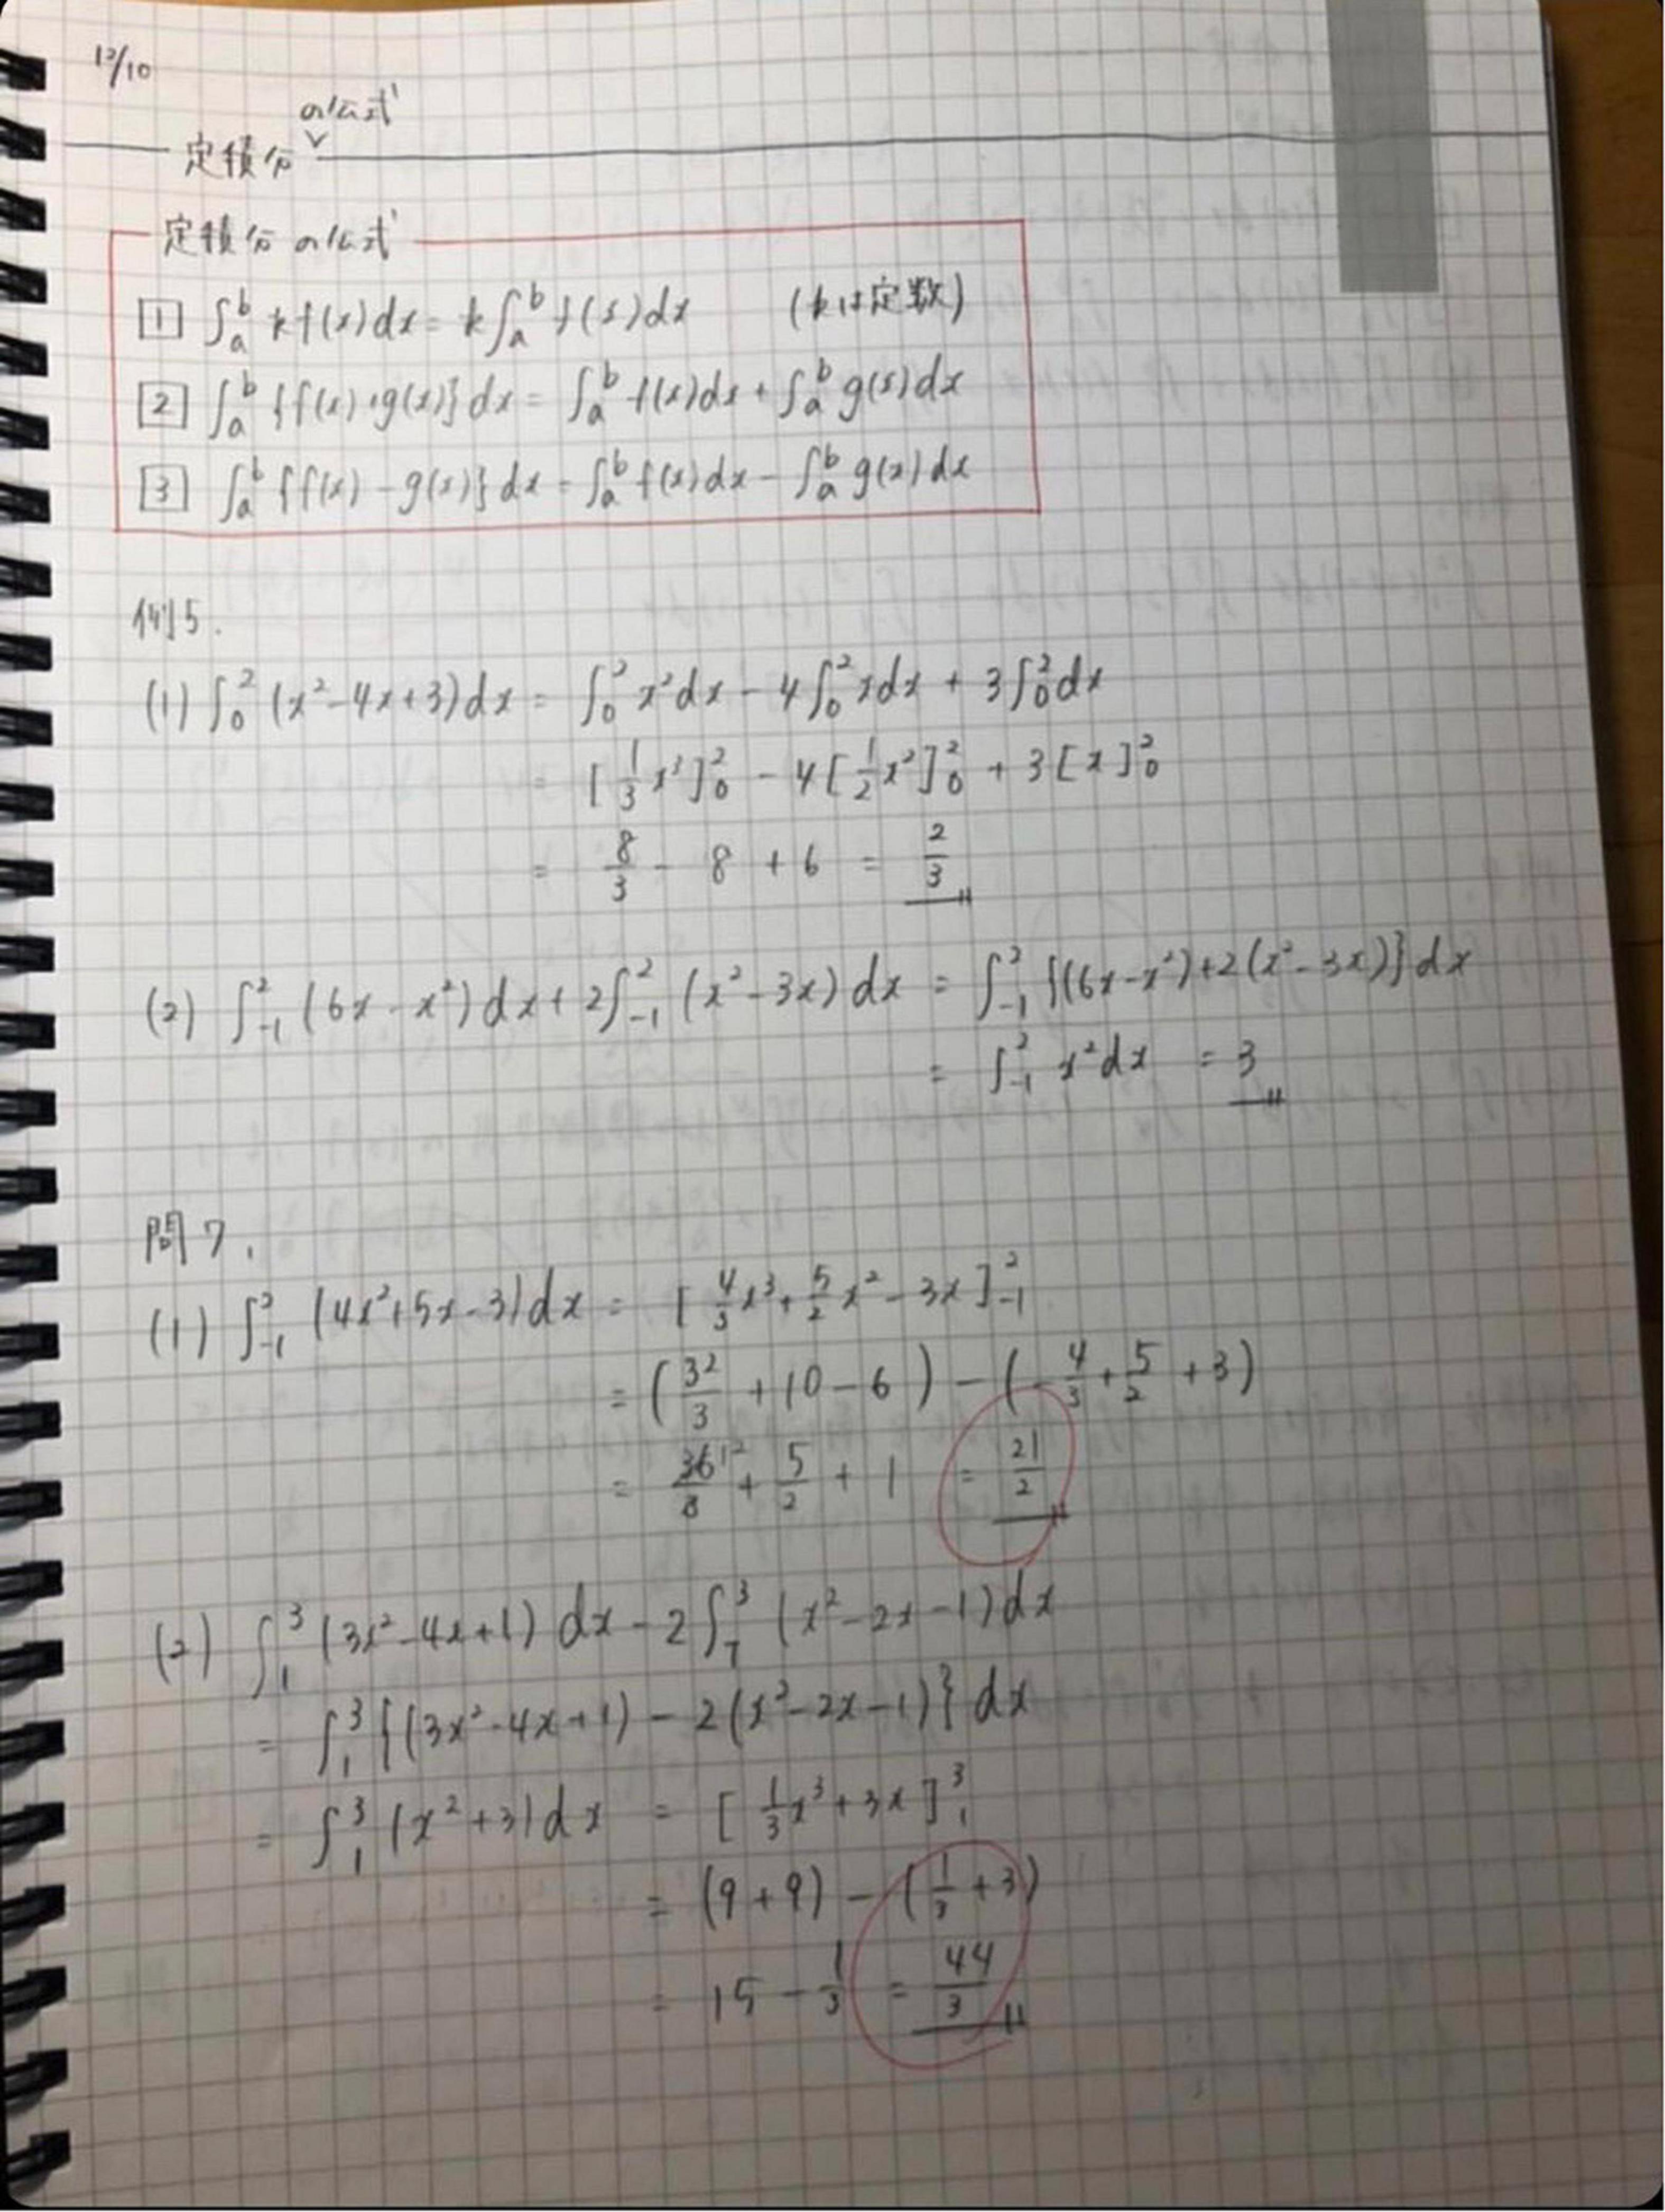 12/10
の公式
定積分
定積分の公式
[1] ∫_a^b kf(x)dx = k∫_a^b f(x)dx (kは定数)
[2] ∫_a^b {f(x)+g(x)}dx = ∫_a^b f(x)dx + ∫_a^b g(x)dx
[3] ∫_a^b {f(x)-g(x)}dx = ∫_a^b f(x)dx - ∫_a^b g(x)dx
例5.
(1) ∫_0^2 (x²-4x+3)dx = ∫_0^2 x²dx - 4∫_0^2 xdx + 3∫_0^2 dx
= [1/3 x³]_0^2 - 4[1/2 x²]_0^2 + 3[x]_0^2
= 8/3 - 8 + 6 = 2/3
(2) ∫_-1^2 (6x-x²)dx + 2∫_-1^2 (x²-3x)dx = ∫_-1^2 {(6x-x²)+2(x²-3x)}dx
= ∫_-1^2 x²dx = 3
問7.
(1) ∫_-1^2 (4x²+5x-3)dx = [4/3 x³ + 5/2 x² - 3x]_-1^2
= (32/3 + 10 - 6) - (-4/3 + 5/2 + 3)
= 36/3 12 + 5/2 + 1 = 21/2
(2) ∫_1^3 (3x²-4x+1)dx - 2∫_1^3 (x²-2x-1)dx
= ∫_1^3 {(3x²-4x+1) - 2(x²-2x-1)}dx
= ∫_1^3 (x²+3)dx = [1/3 x³ + 3x]_1^3
= (9+9) - (1/3 + 3)
= 15 - 1/3 = 44/3